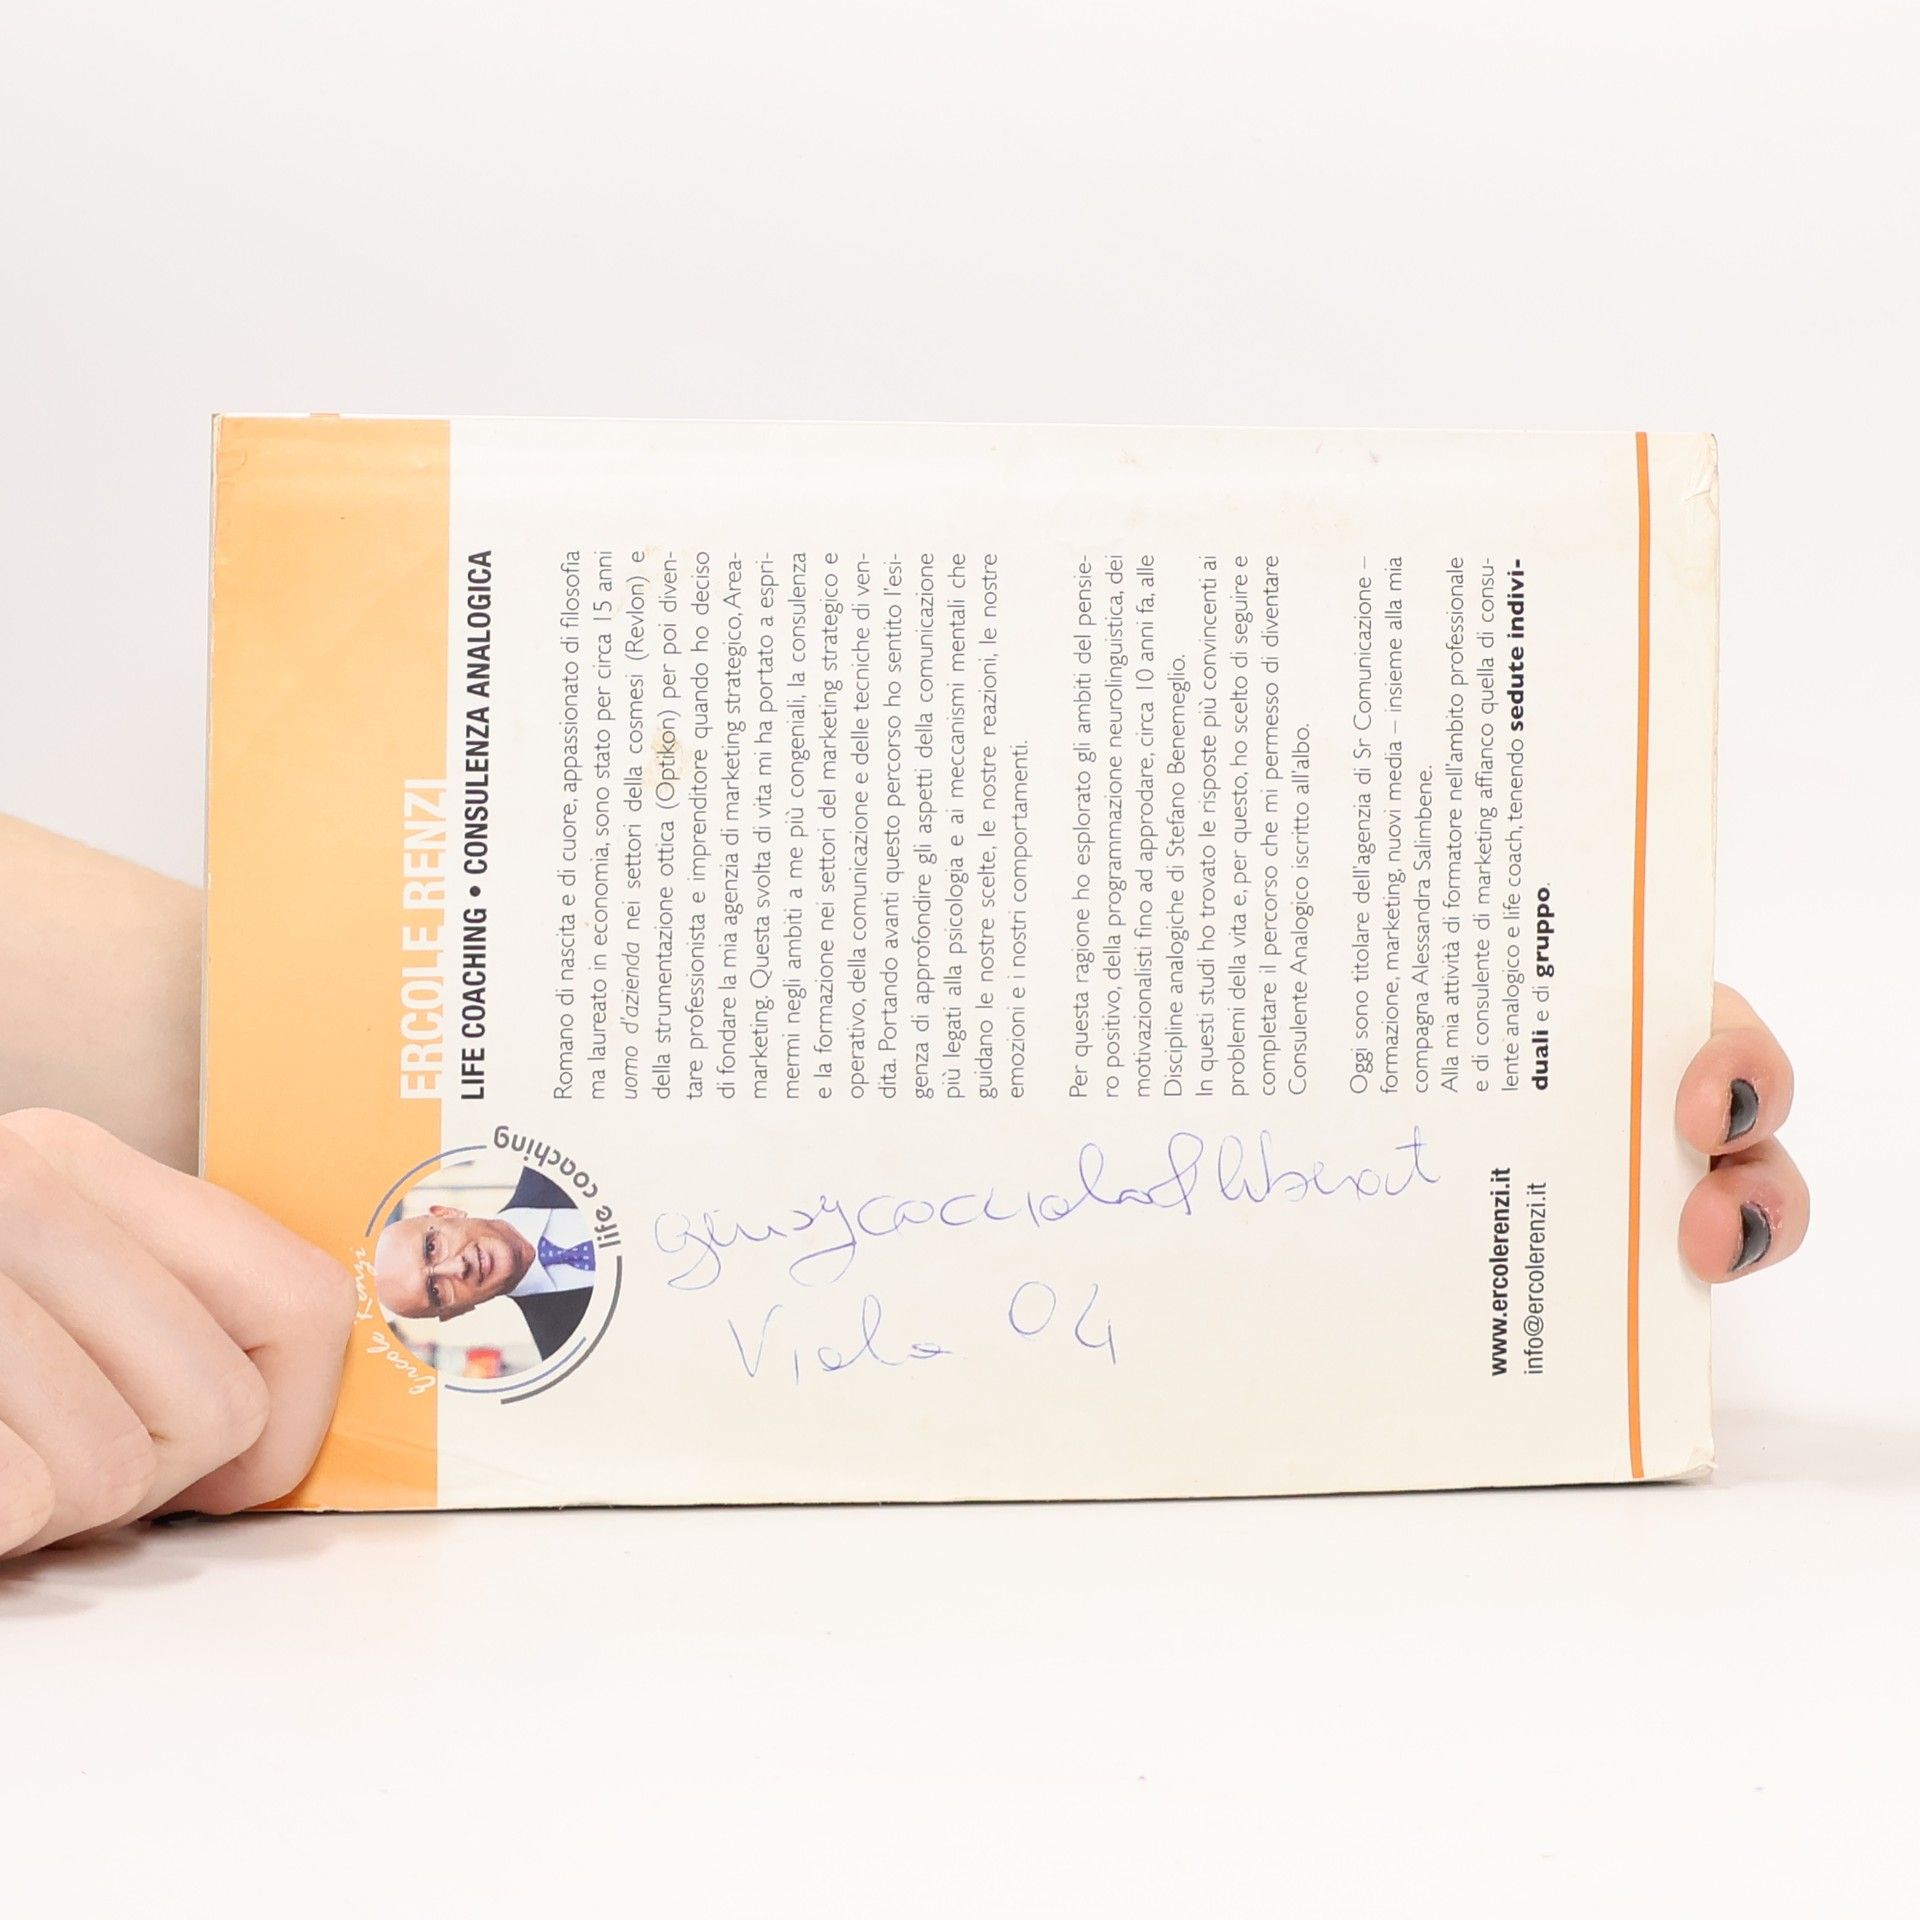 ERCOLE RENZI
LIFE COACHING • CONSULENZA ANALOGICA
Ercole Renzi
life coaching
Romano di nascita e di cuore, appassionato di filosofia
ma laureato in economia, sono stato per circa 15 anni
uomo d'azienda nei settori della cosmesi (Revlon) e
della strumentazione ottica (Optikon) per poi diven-
tare professionista e imprenditore quando ho deciso
di fondare la mia agenzia di marketing strategico, Area-
marketing. Questa svolta di vita mi ha portato a espri-
mermi negli ambiti a me più congeniali, la consulenza
e la formazione nei settori del marketing strategico e
operativo, della comunicazione e delle tecniche di ven-
dita. Portando avanti questo percorso ho sentito l'esi-
genza di approfondire gli aspetti della comunicazione
più legati alla psicologia e ai meccanismi mentali che
guidano le nostre scelte, le nostre reazioni, le nostre
emozioni e i nostri comportamenti.
Per questa ragione ho esplorato gli ambiti del pensie-
ro positivo, della programmazione neurolinguistica, dei
motivazionalisti fino ad approdare, circa 10 anni fa, alle
Discipline analogiche di Stefano Benemeglio.
In questi studi ho trovato le risposte più convincenti ai
problemi della vita e, per questo, ho scelto di seguire e
completare il percorso che mi permesso di diventare
Consulente Analogico iscritto all'albo.
Oggi sono titolare dell'agenzia di Sr Comunicazione –
formazione, marketing, nuovi media – insieme alla mia
compagna Alessandra Salimbene.
Alla mia attività di formatore nell'ambito professionale
e di consulente di marketing affianco quella di consu-
lente analogico e life coach, tenendo sedute indivi-
duali e di gruppo.
Viola 04
www.ercolerenzi.it
info@ercolerenzi.it